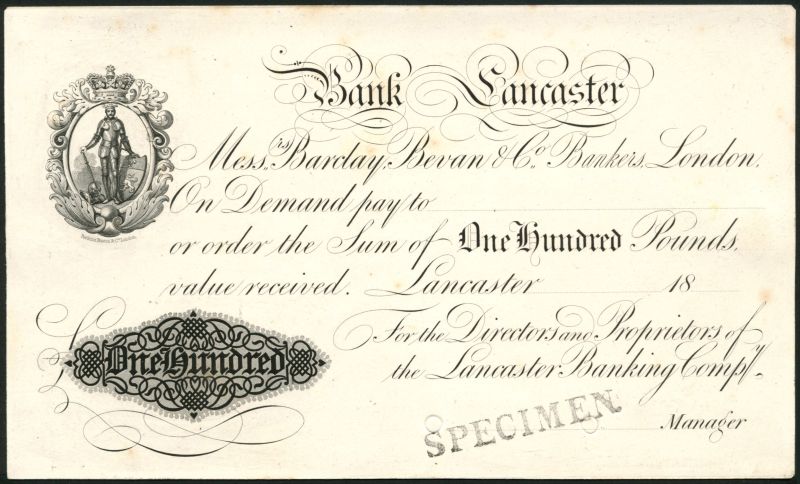 Bank Lancaster
Mess.rs Barclay, Bevan & Co. Bankers, London.
On Demand pay to
or order the Sum of One Hundred Pounds,
value received. Lancaster 18
£ One Hundred
For the Directors and Proprietors of
the Lancaster Banking Compy.
SPECIMEN
Manager